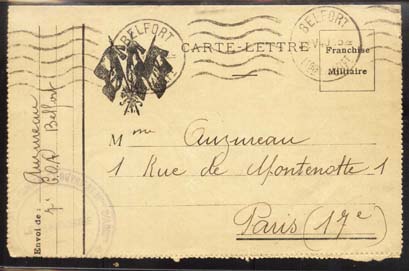 BELFORT
CARTE-LETTRE
BELFORT
Franchise
Militaire
Mme Auzureau
1 Rue de Montenotte 1
Paris (17e)
Envoi de : Auzureau
Belfort